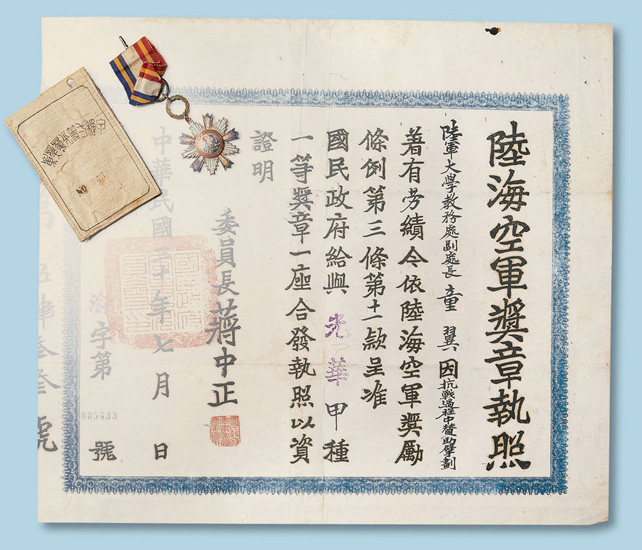 陸海空軍獎章執照
陸軍大學教務處副處長童翼因抗戰過程中贊助擘劃
著有勞績今依陸海空軍獎勵
條例第三條第十一款呈准
國民政府給與光華甲種
一等獎章一座合發執照以資
證明
委員長蔣中正
中華民國三十年七月 日
渝字第 號
005433